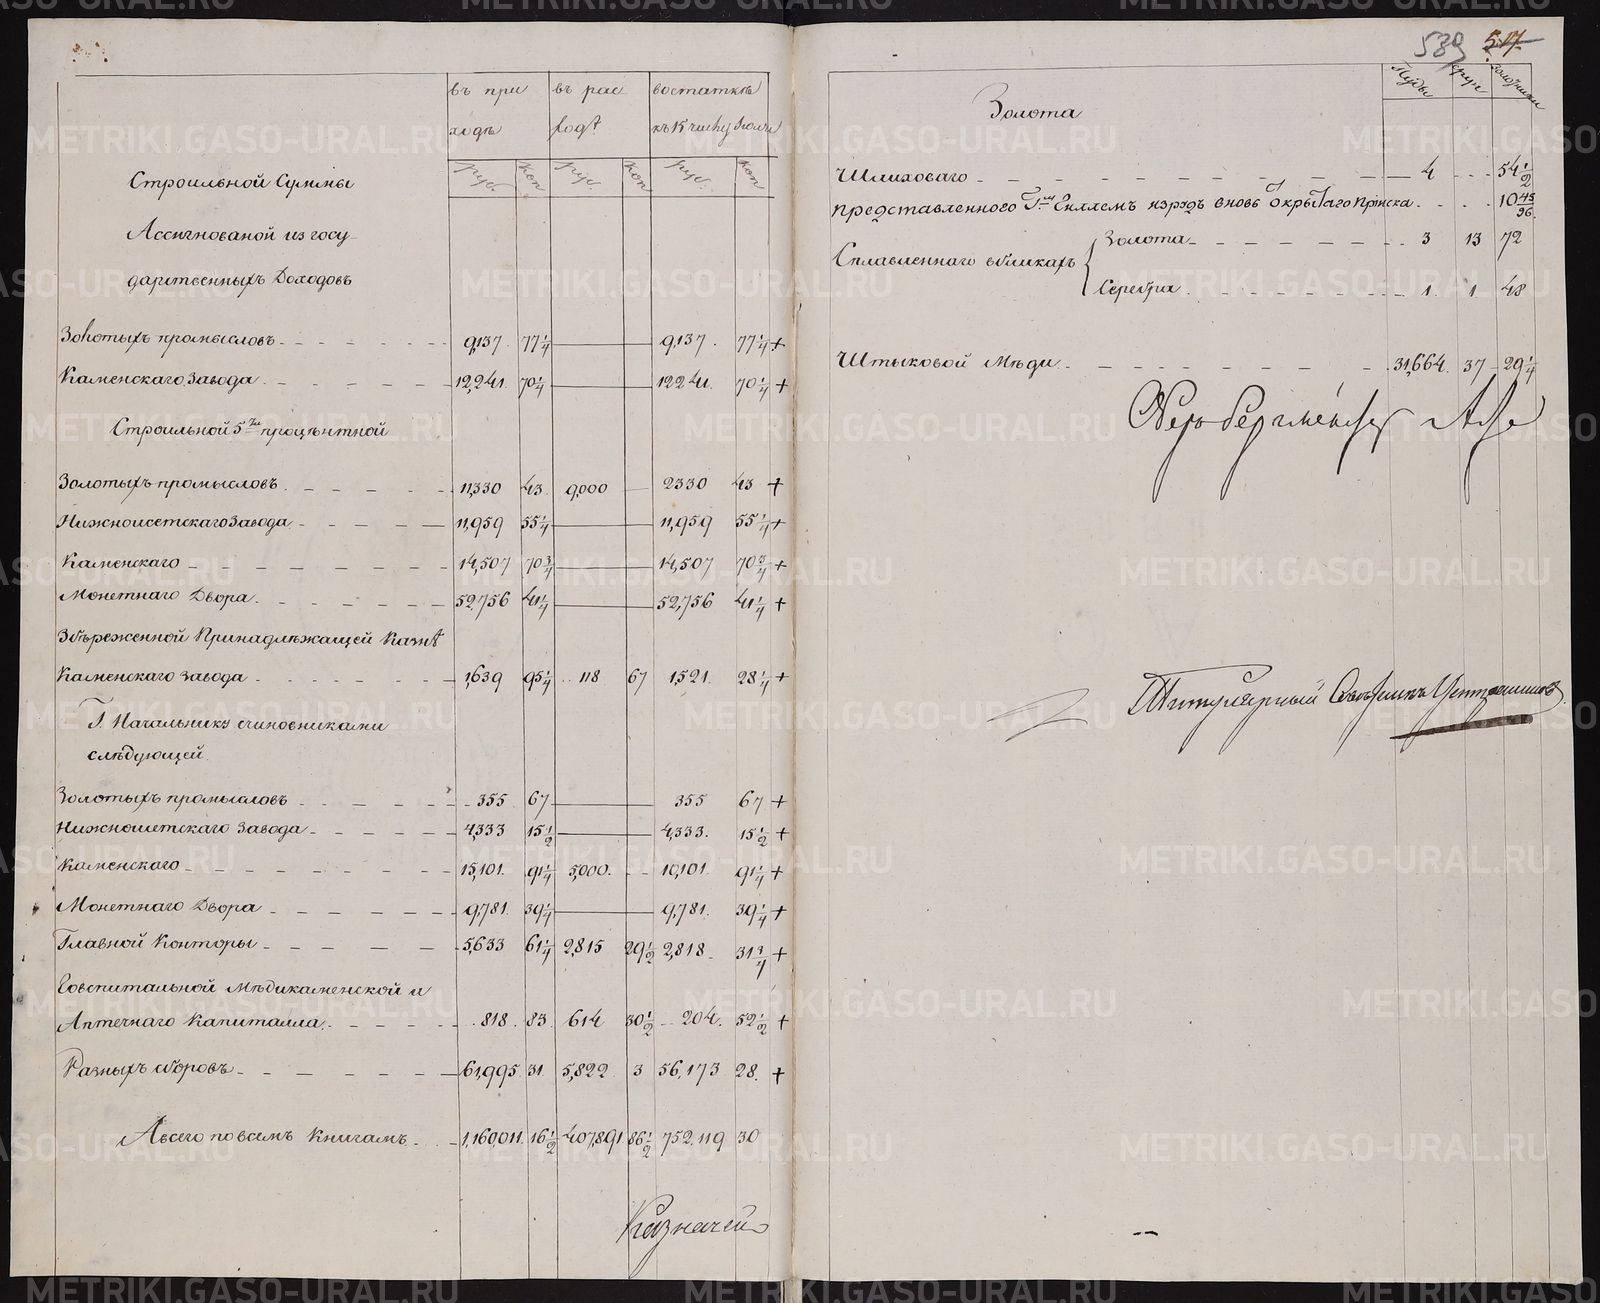 въ при въ рас востаткѣ
ходѣ ходѣ къ 15 числу Июля
руб. коп руб. коп руб. коп
Строильной Суммы
Ассигнованой из госу-
дарственныхъ Доходовъ
Золотыхъ промысловъ 9,137. 77 1/4 9,137. 77 1/4 +
Каменскаго Завода 12,241. 70 1/4 12241. 70 1/4 +
Строильной 5ти процѣнтной
Золотыхъ промысловъ 11,330 43. 9,000 2330 43 +
Нижноисетскаго Завода 11,959 55 1/4 11,959 55 1/4 +
Каменскаго 14,507 70 3/4 14,507 70 3/4 +
Монетнаго Двора 52,756 41 1/4 52,756 41 1/4 +
Збѣреженной Принадлѣжащей Казнѣ
Каменскаго завода 1,639 95 1/4 118 67 1,521. 28 1/4 +
Г. Начальника счиновниками
слѣдующей
Золотыхъ промысловъ 355 67 355 67 +
Нижноисетскаго Завода 4,333 15 1/2 4,333. 15 1/2 +
Каменскаго 15,101. 91 1/4 5,000. 10,101. 91 1/4 +
Монетнаго Двора 9,781. 39 1/4 9,781. 39 1/4 +
Главной Конторы 5,633 61 1/4 2,815 29 1/2 2,818 31 3/4 +
Говспитальной Мѣдикаменской и
Аптечнаго Капиталла 818. 83. 614 30 1/2 204. 52 1/2 +
Разныхъ сборовъ 61,995 31. 5,822 3 56,173 28. +
Авсего повсемъ Книгамъ 1,160,011. 16 1/2 407,891 86 1/2 752,119 30
Казначей
539 517
Пуды фун золотники
Золота
Шлиховаго 4 54 1/2
представленного изродъ вновь Прїиска 10 43/96
Сплавленнаго
Золота 3 13 72
Серебра 1 1 48
Штыковой Мѣди 31,664. 37 29 1/4
Обербергмейстеръ
Титулярный Совѣтникъ